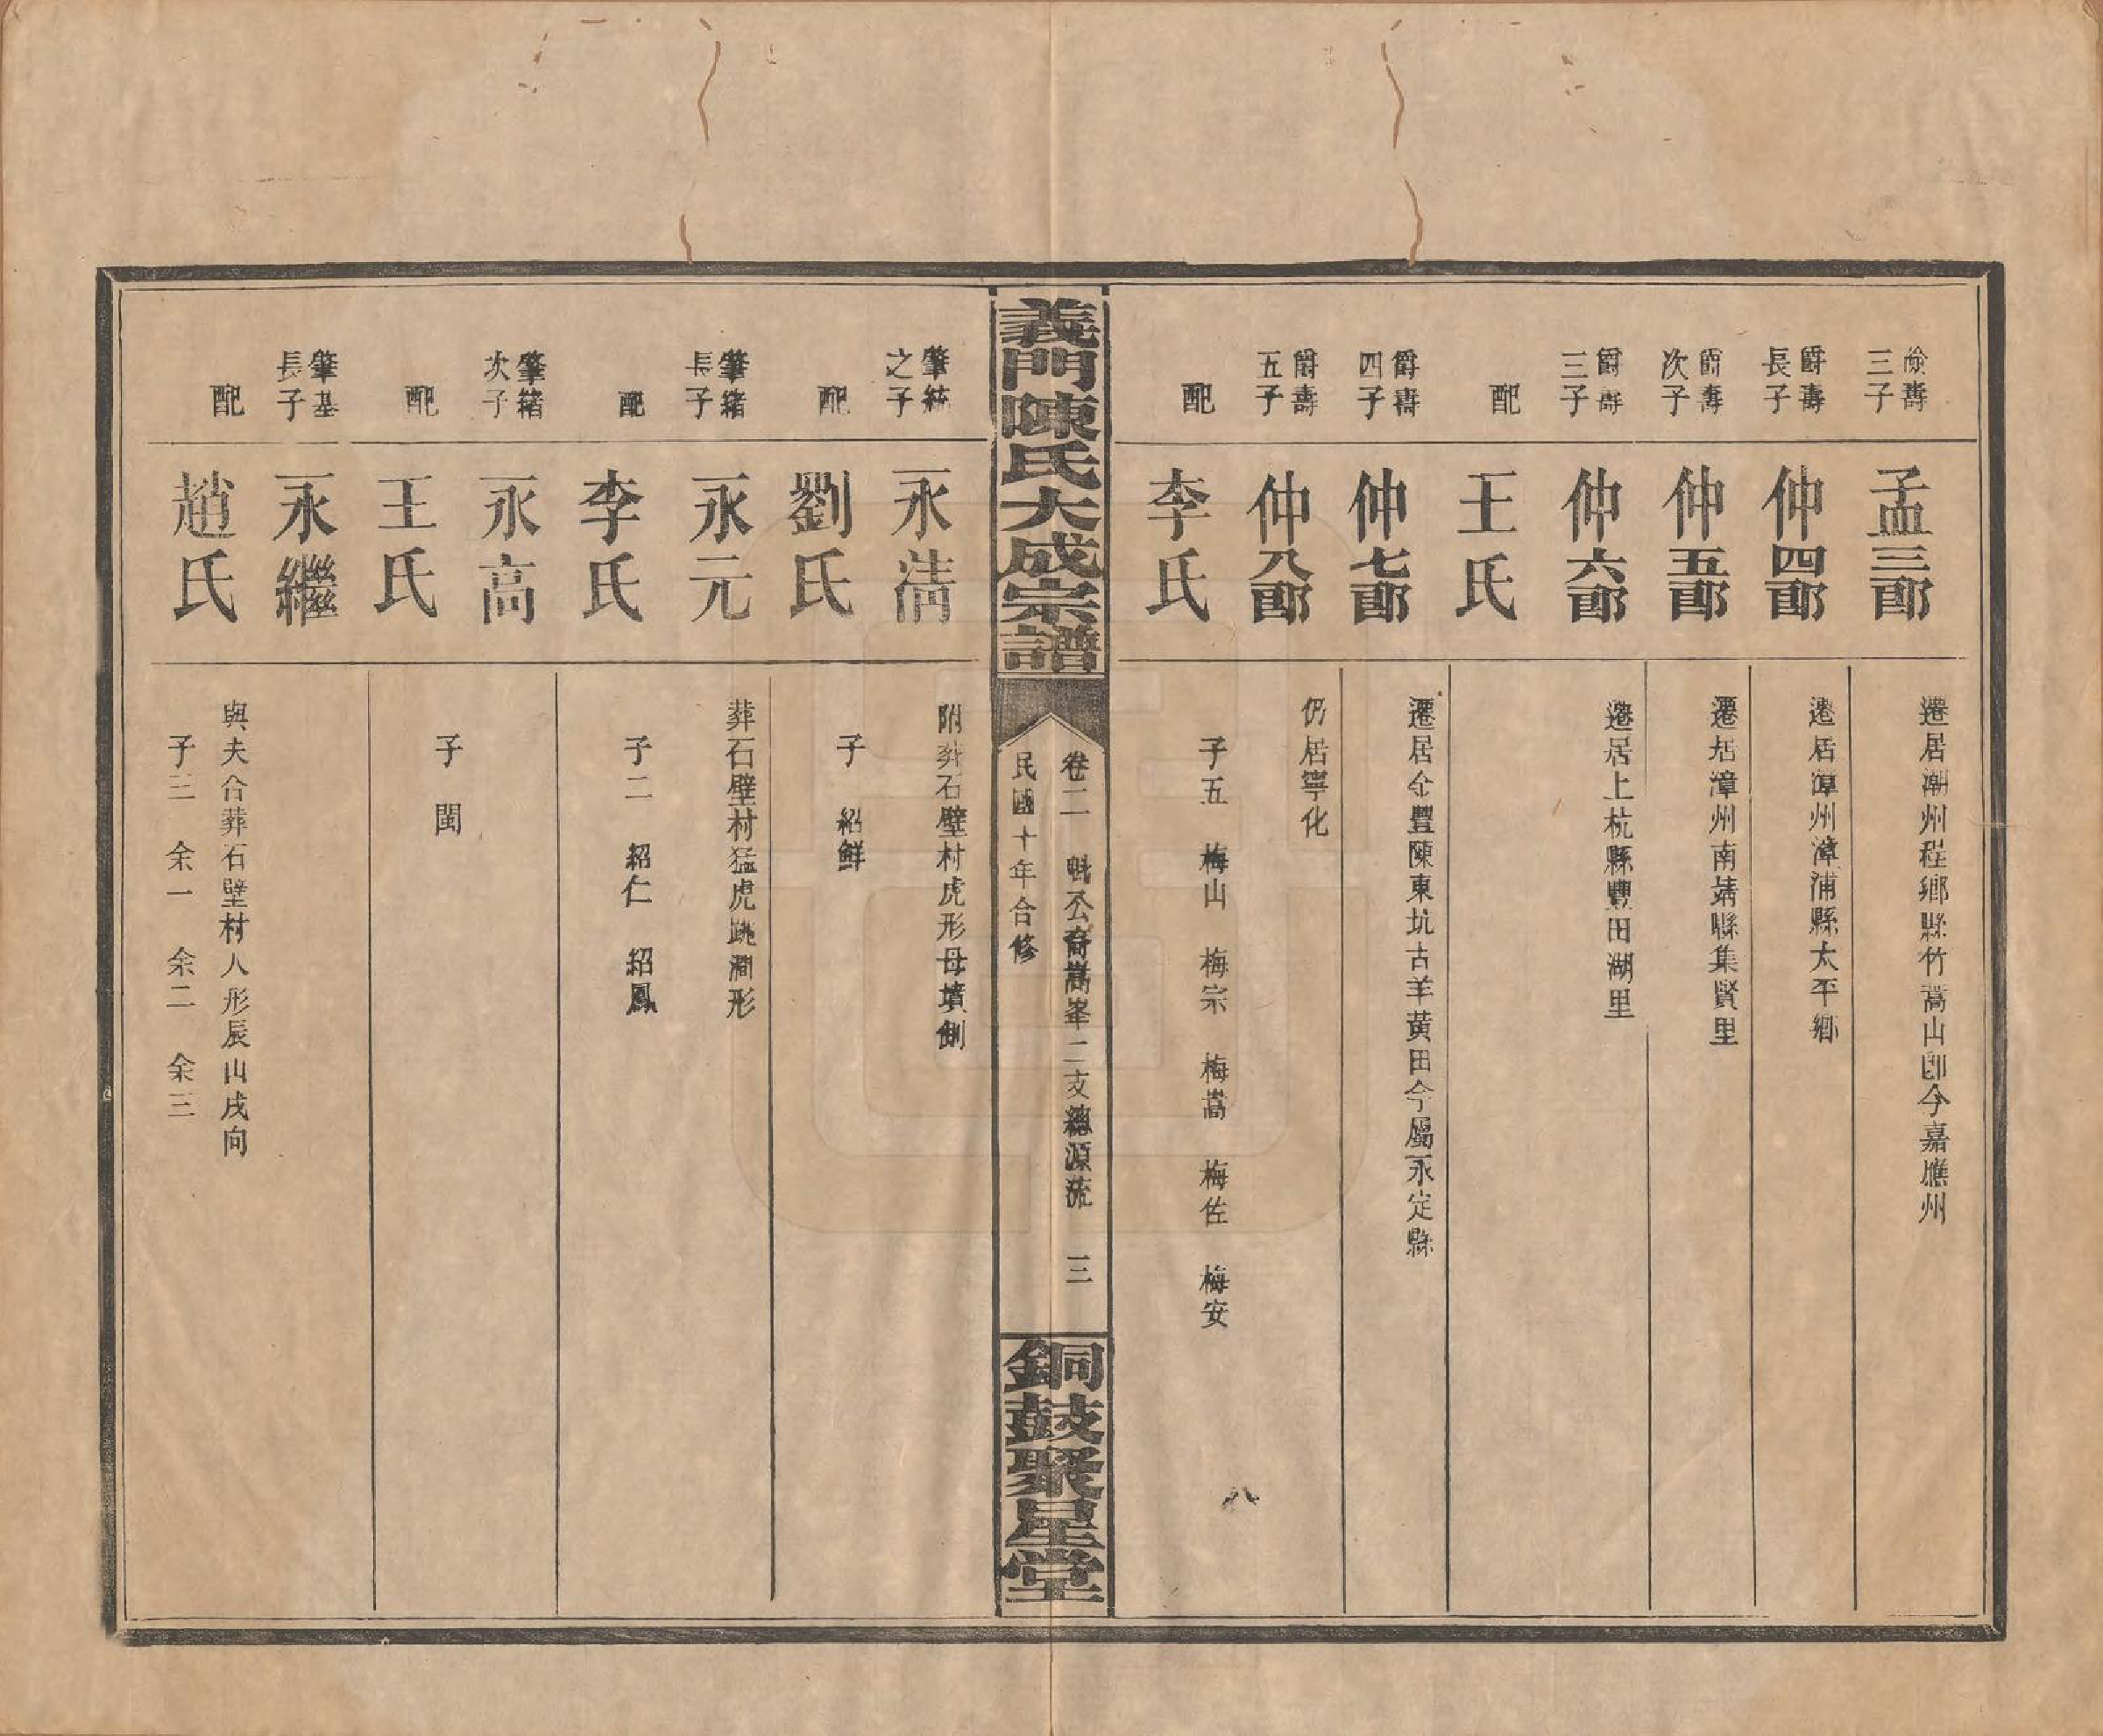 儉壽
三子
孟三郎
遷居潮州程鄉縣竹蒿山卽今嘉應州
爵壽
長子
仲四郎
遷居漳州漳浦縣太平鄉
爵壽
次子
仲五郎
遷居漳州南靖縣集賢里
爵壽
三子
仲六郎
遷居上杭縣豐田湖里
配
王氏
爵壽
四子
仲七郎
遷居金豐陳東坑古羊黃田今屬永定縣
爵壽
五子
仲八郎
仍居寧化
配
李氏
子五　梅山　梅宗　梅嵩　梅佐　梅安
八
義門陳氏大成宗譜
卷二　魁公裔嵩峯二支總源流　三
民國十年合修
銅鼓聚星堂
肇統
之子
永清
附葬石壁村虎形母墳側
配
劉氏
子　紹鮮
肇緒
長子
永元
葬石壁村猛虎跳澗形
配
李氏
子二　紹仁　紹鳳
肇緒
次子
永高
配
王氏
子　閏
肇基
長子
永繼
配
趙氏
與夫合葬石壁村人形辰山戌向
子三　余一　余二　余三